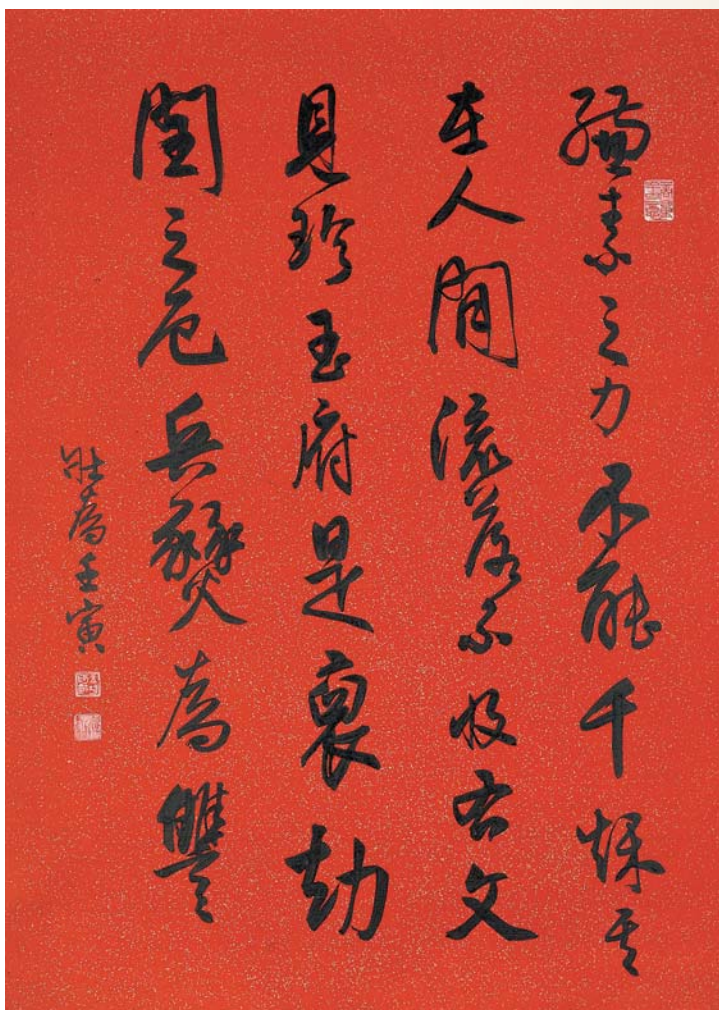 縑素之力不能千秋其
在人間流落不收右文
見珍玉府是裒劫
閏之厄兵燹為讐
壯為壬寅